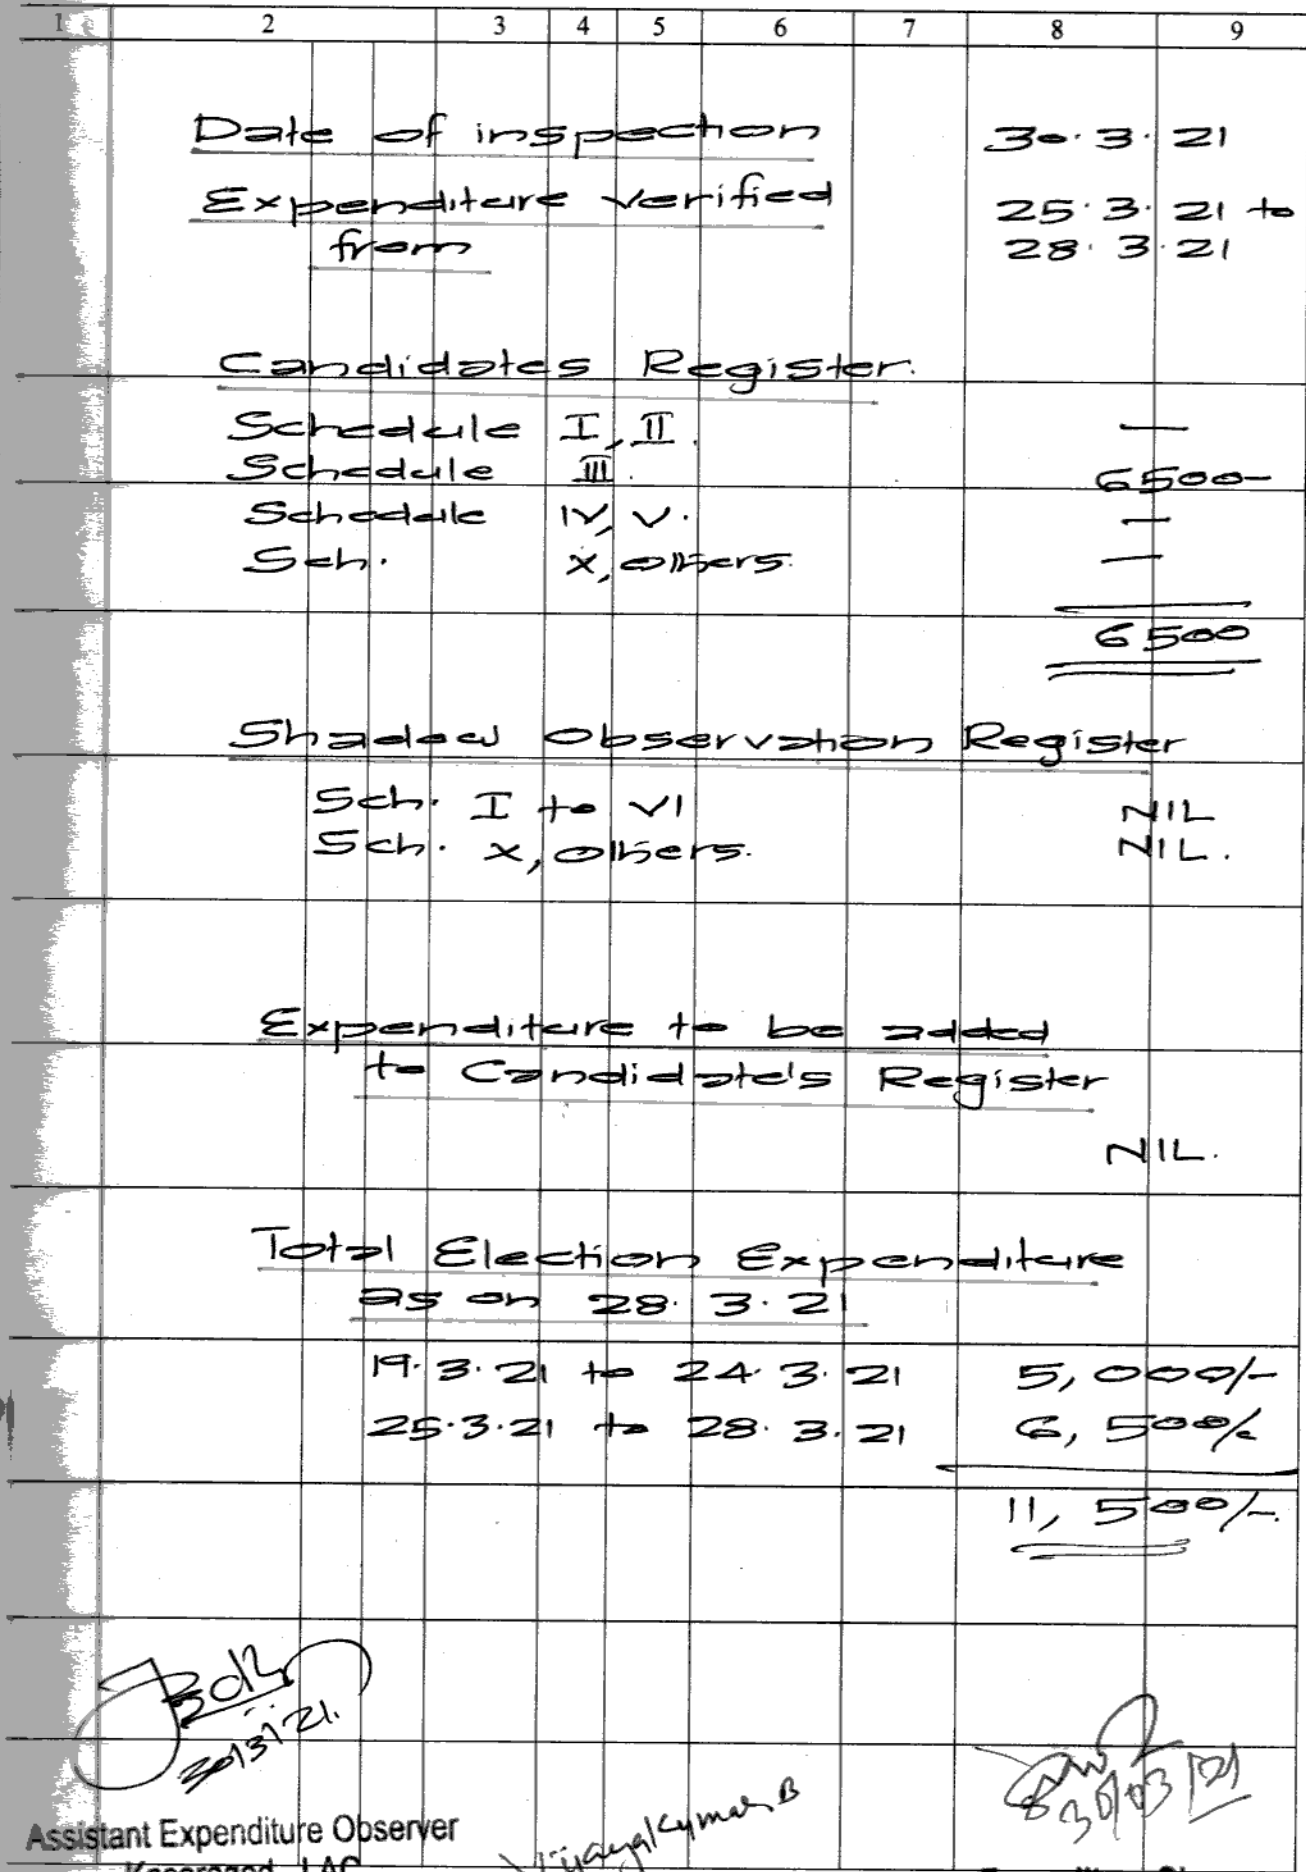 1 2 3 4 5 6 7 8 9
Date of inspection 30.3.21
Expenditure verified 25.3.21 to
from 28.3.21
Candidates Register.
Schedule I, II. —
Schedule III. 6500-
Schedule IV, V. —
Sch. X, others. —
6500
Shadow Observation Register
Sch. I to VI NIL
Sch. X, others. NIL.
Expenditure to be added
to Candidate's Register
NIL.
Total Election Expenditure
as on 28.3.21
19.3.21 to 24.3.21 5,000/-
25.3.21 to 28.3.21 6,500/-
11,500/-
30/3/21.
30/03/21
Assistant Expenditure Observer
Vijayakumar B
Kasaragod LAC